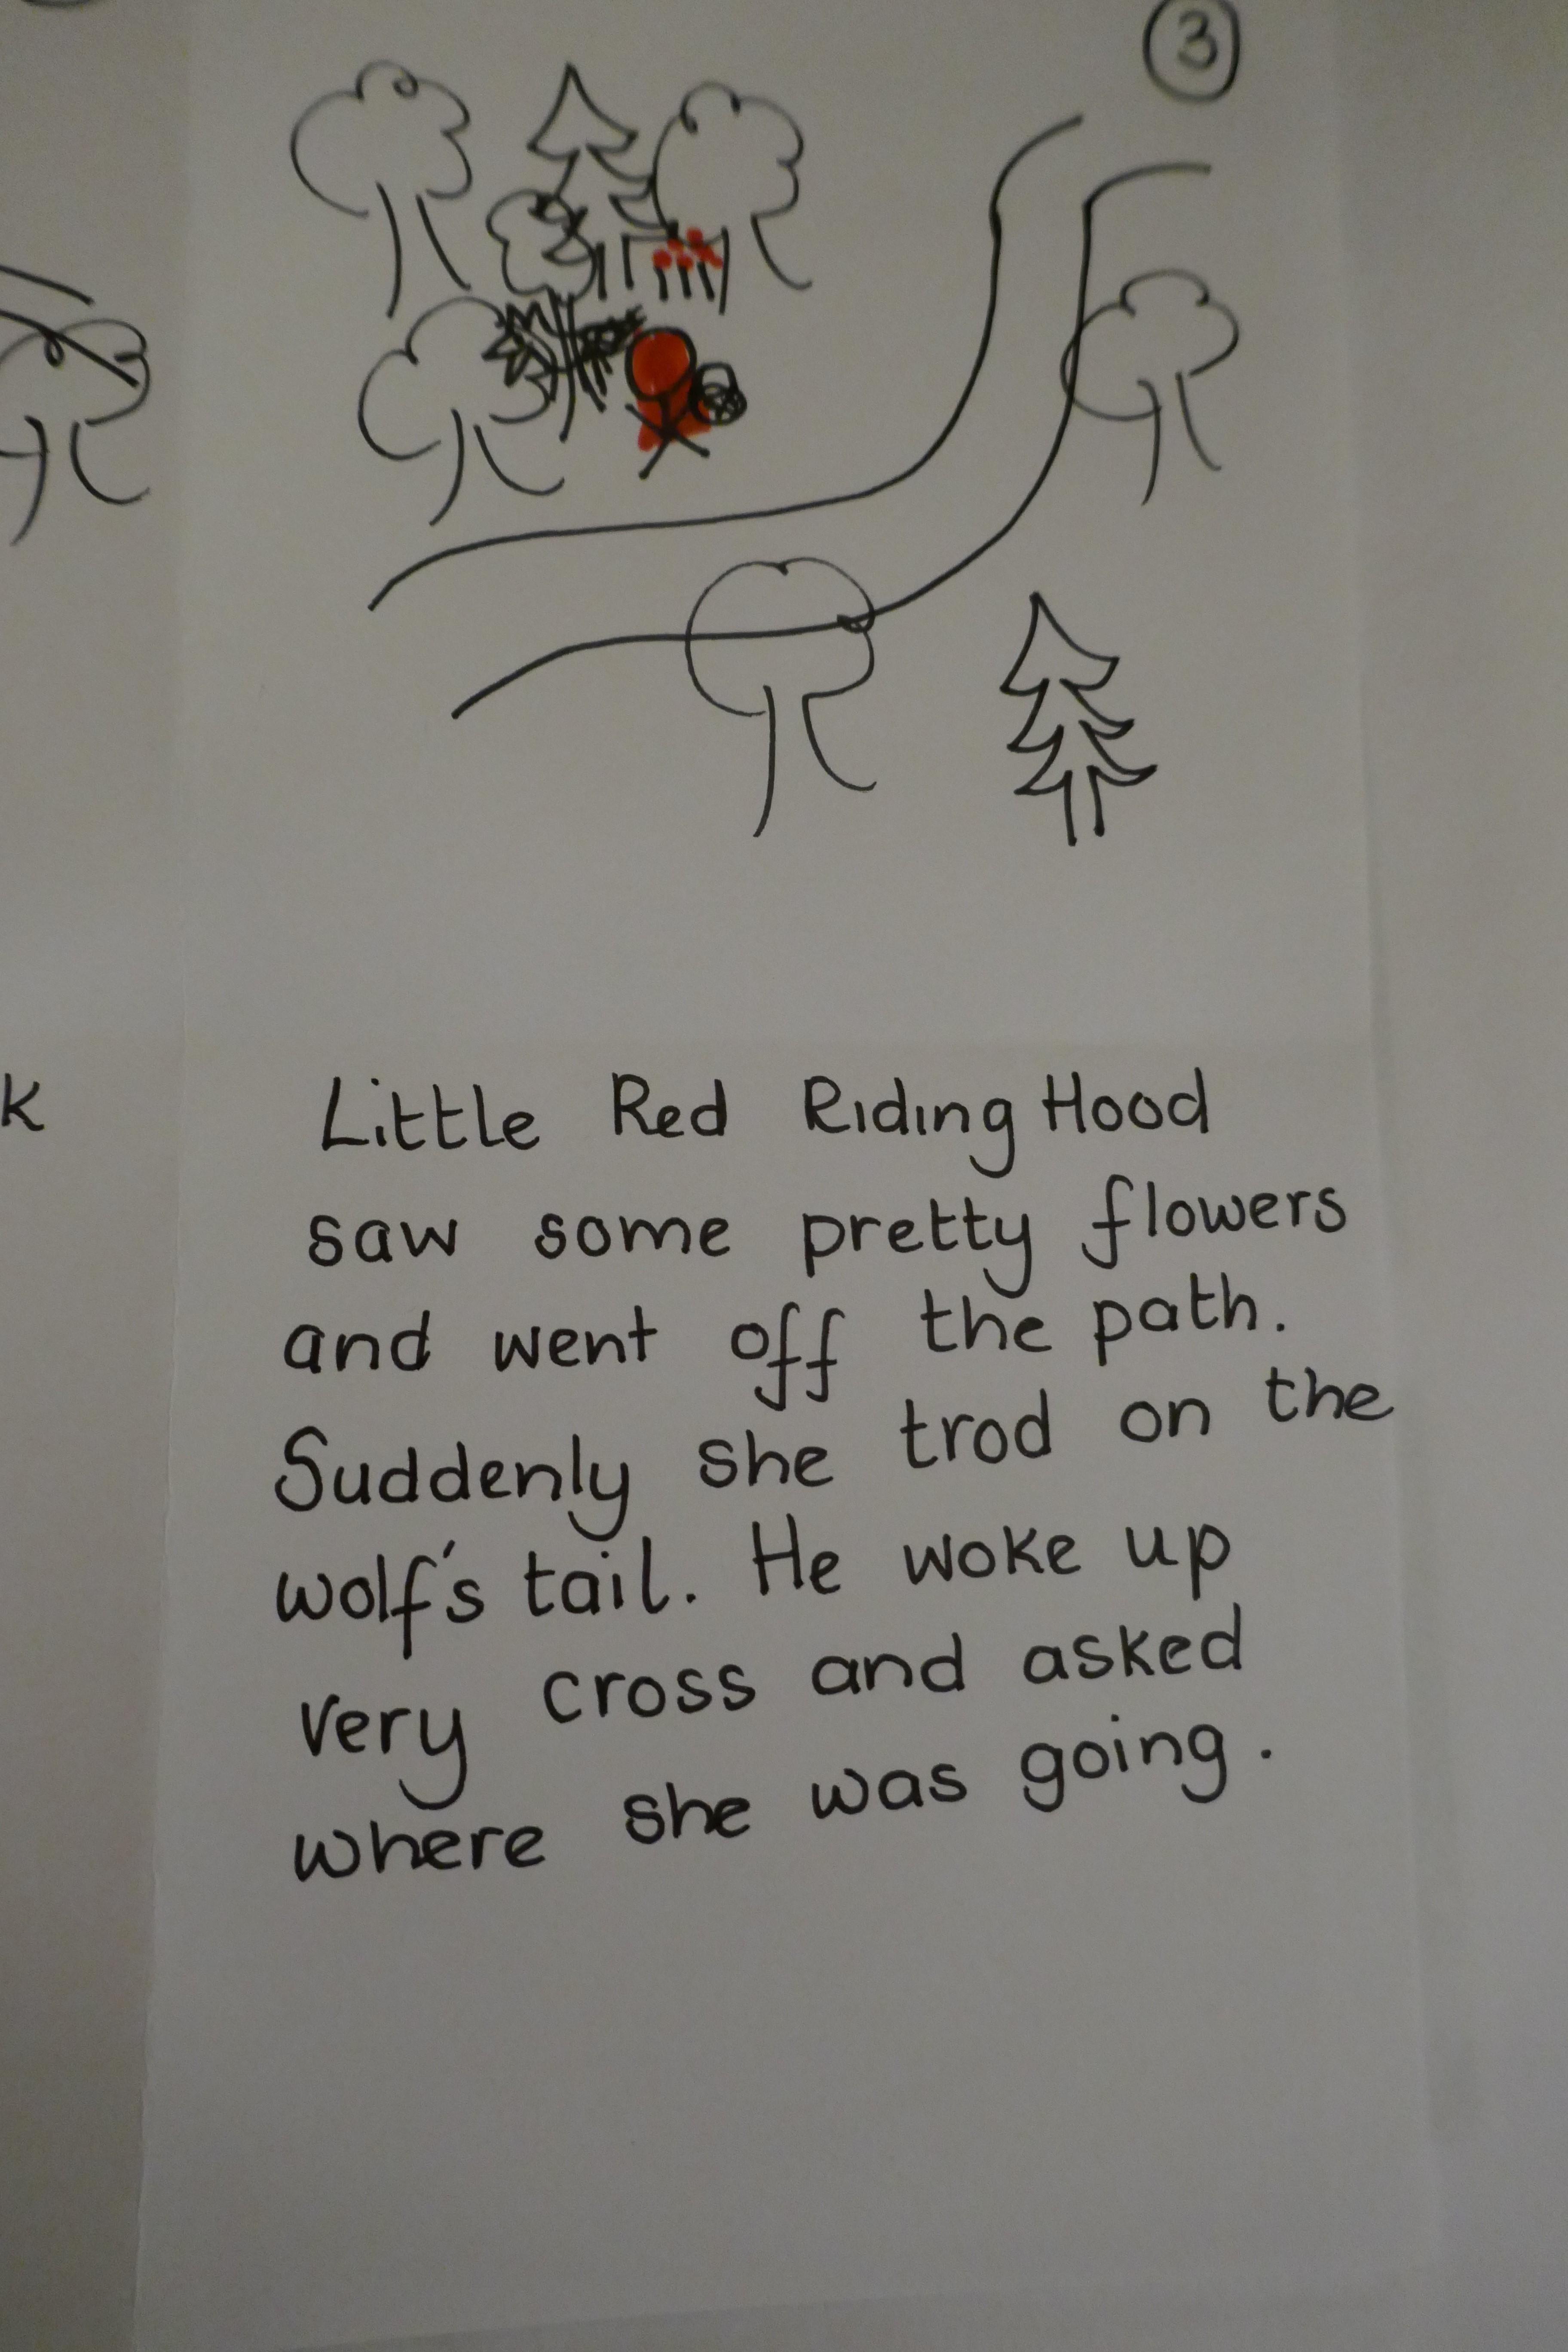 3
k
Little Red Riding Hood
saw some pretty flowers
and went off the path.
Suddenly she trod on the
wolf's tail. He woke up
very cross and asked
where she was going.